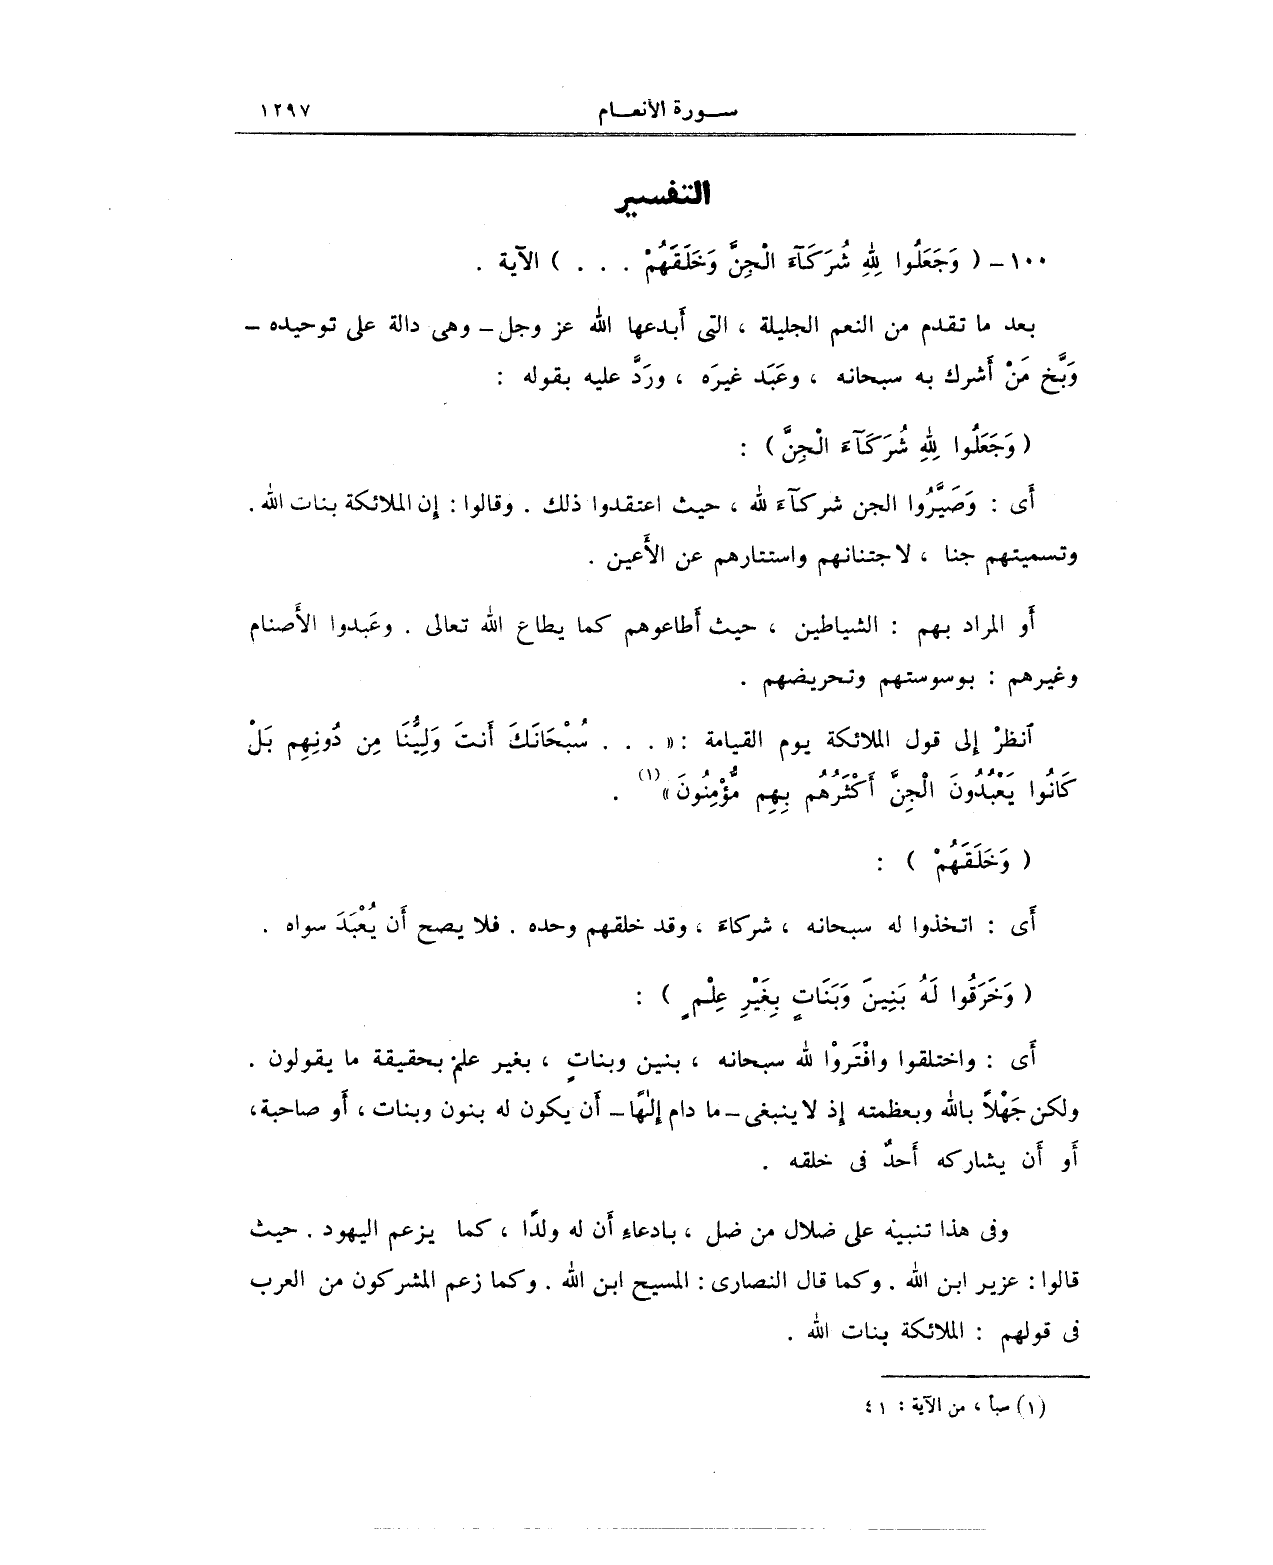 سورة الأنعام ١٢٩٧
التفسير
١٠٠ – ( وَجَعَلُوا لِلّٰهِ شُرَكَآءَ الْجِنَّ وَخَلَقَهُمْ . . . ) الآية .
بعد ما تقدم من النعم الجليلة ، التى أَبدعها الله عز وجل – وهى دالة على توحيده –
وَبَّخ مَنْ أَشرك به سبحانه ، وعَبَد غيرَه ، وردَّ عليه بقوله :
( وَجَعَلُوا لِلّٰهِ شُرَكَآءَ الْجِنَّ ) :
أَى : وَصَيَّرُوا الجن شركآءَ لله ، حيث اعتقدوا ذلك . وقالوا : إِن الملائكة بنات الله .
وتسميتهم جنا ، لاجتنانهم واستتارهم عن الأَعين .
أَو المراد بهم : الشياطين ، حيث أَطاعوهم كما يطاع الله تعالى . وعَبدوا الأَصنام
وغيرهم : بوسوستهم وتحريضهم .
اَنظرْ إِلى قول الملائكة يوم القيامة : « . . . سُبْحَانَكَ أَنتَ وَلِيُّنَا مِن دُونِهِم بَلْ
كَانُوا يَعْبُدُونَ الْجِنَّ أَكْثَرُهُم بِهِم مُّؤْمِنُونَ » (١) .
( وَخَلَقَهُمْ ) :
أَى : اتخذوا له سبحانه ، شركاءَ ، وقد خلقهم وحده . فلا يصح أَن يُعْبَدَ سواه .
( وَخَرَقُوا لَهُ بَنِينَ وَبَنَاتٍ بِغَيْرِ عِلْمٍ ) :
أَى : واختلقوا وافْتَروْا لله سبحانه ، بنين وبناتٍ ، بغير علمْ بحقيقة ما يقولون .
ولكن جَهْلاً بالله وبعظمته إِذ لا ينبغى – ما دام إِلٰهًا – أَن يكون له بنون وبنات ، أَو صاحبة ،
أَو أَن يشاركه أَحدٌ فى خلقه .
وفى هذا تنبيْه على ضلال من ضل ، بادعاءِ أَن له ولدًا ، كما يزعم اليهود . حيث
قالوا : عزير ابن الله . وكما قال النصارى : المسيح ابن الله . وكما زعم المشركون من العرب
فى قولهم : الملائكة بنات الله .
(١) سبأ ، من الآية : ٤١